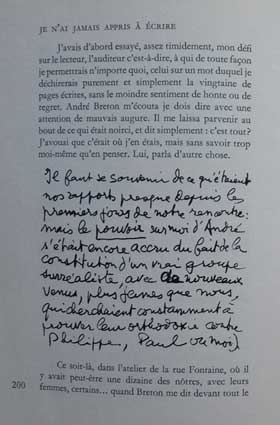 JE N'AI JAMAIS APPRIS À ÉCRIRE
J'avais d'abord essayé, assez timidement, mon défi
sur le lecteur, l'auditeur c'est-à-dire, à qui de toute façon
je permettrais n'importe quoi, celui sur un mot duquel je
déchirerais purement et simplement la vingtaine de
pages écrites, sans le moindre sentiment de honte ou de
regret. André Breton m'écouta je dois dire avec une
attention de mauvais augure. Il me laissa parvenir au
bout de ce qui était noirci, et dit simplement : c'est tout?
J'avouai que c'était où j'en étais, mais sans savoir trop
moi-même qu'en penser. Lui, parla d'autre chose.
Il faut se souvenir de ce qu'étaient
nos rapports presque depuis les
premiers jours de notre rencontre:
mais le pouvoir sur moi d'André
s'était encore accru du fait de la
constitution d'un vrai groupe
surréaliste, avec de nouveaux
venus, plus jeunes que nous,
qui cherchaient constamment à
prouver leur orthodoxie contre
Philippe, Paul ou moi)
Ce soir-là, dans l'atelier de la rue Fontaine, où il
y avait peut-être une dizaine des nôtres, avec leurs
200
femmes, certains... quand Breton me dit devant tout le